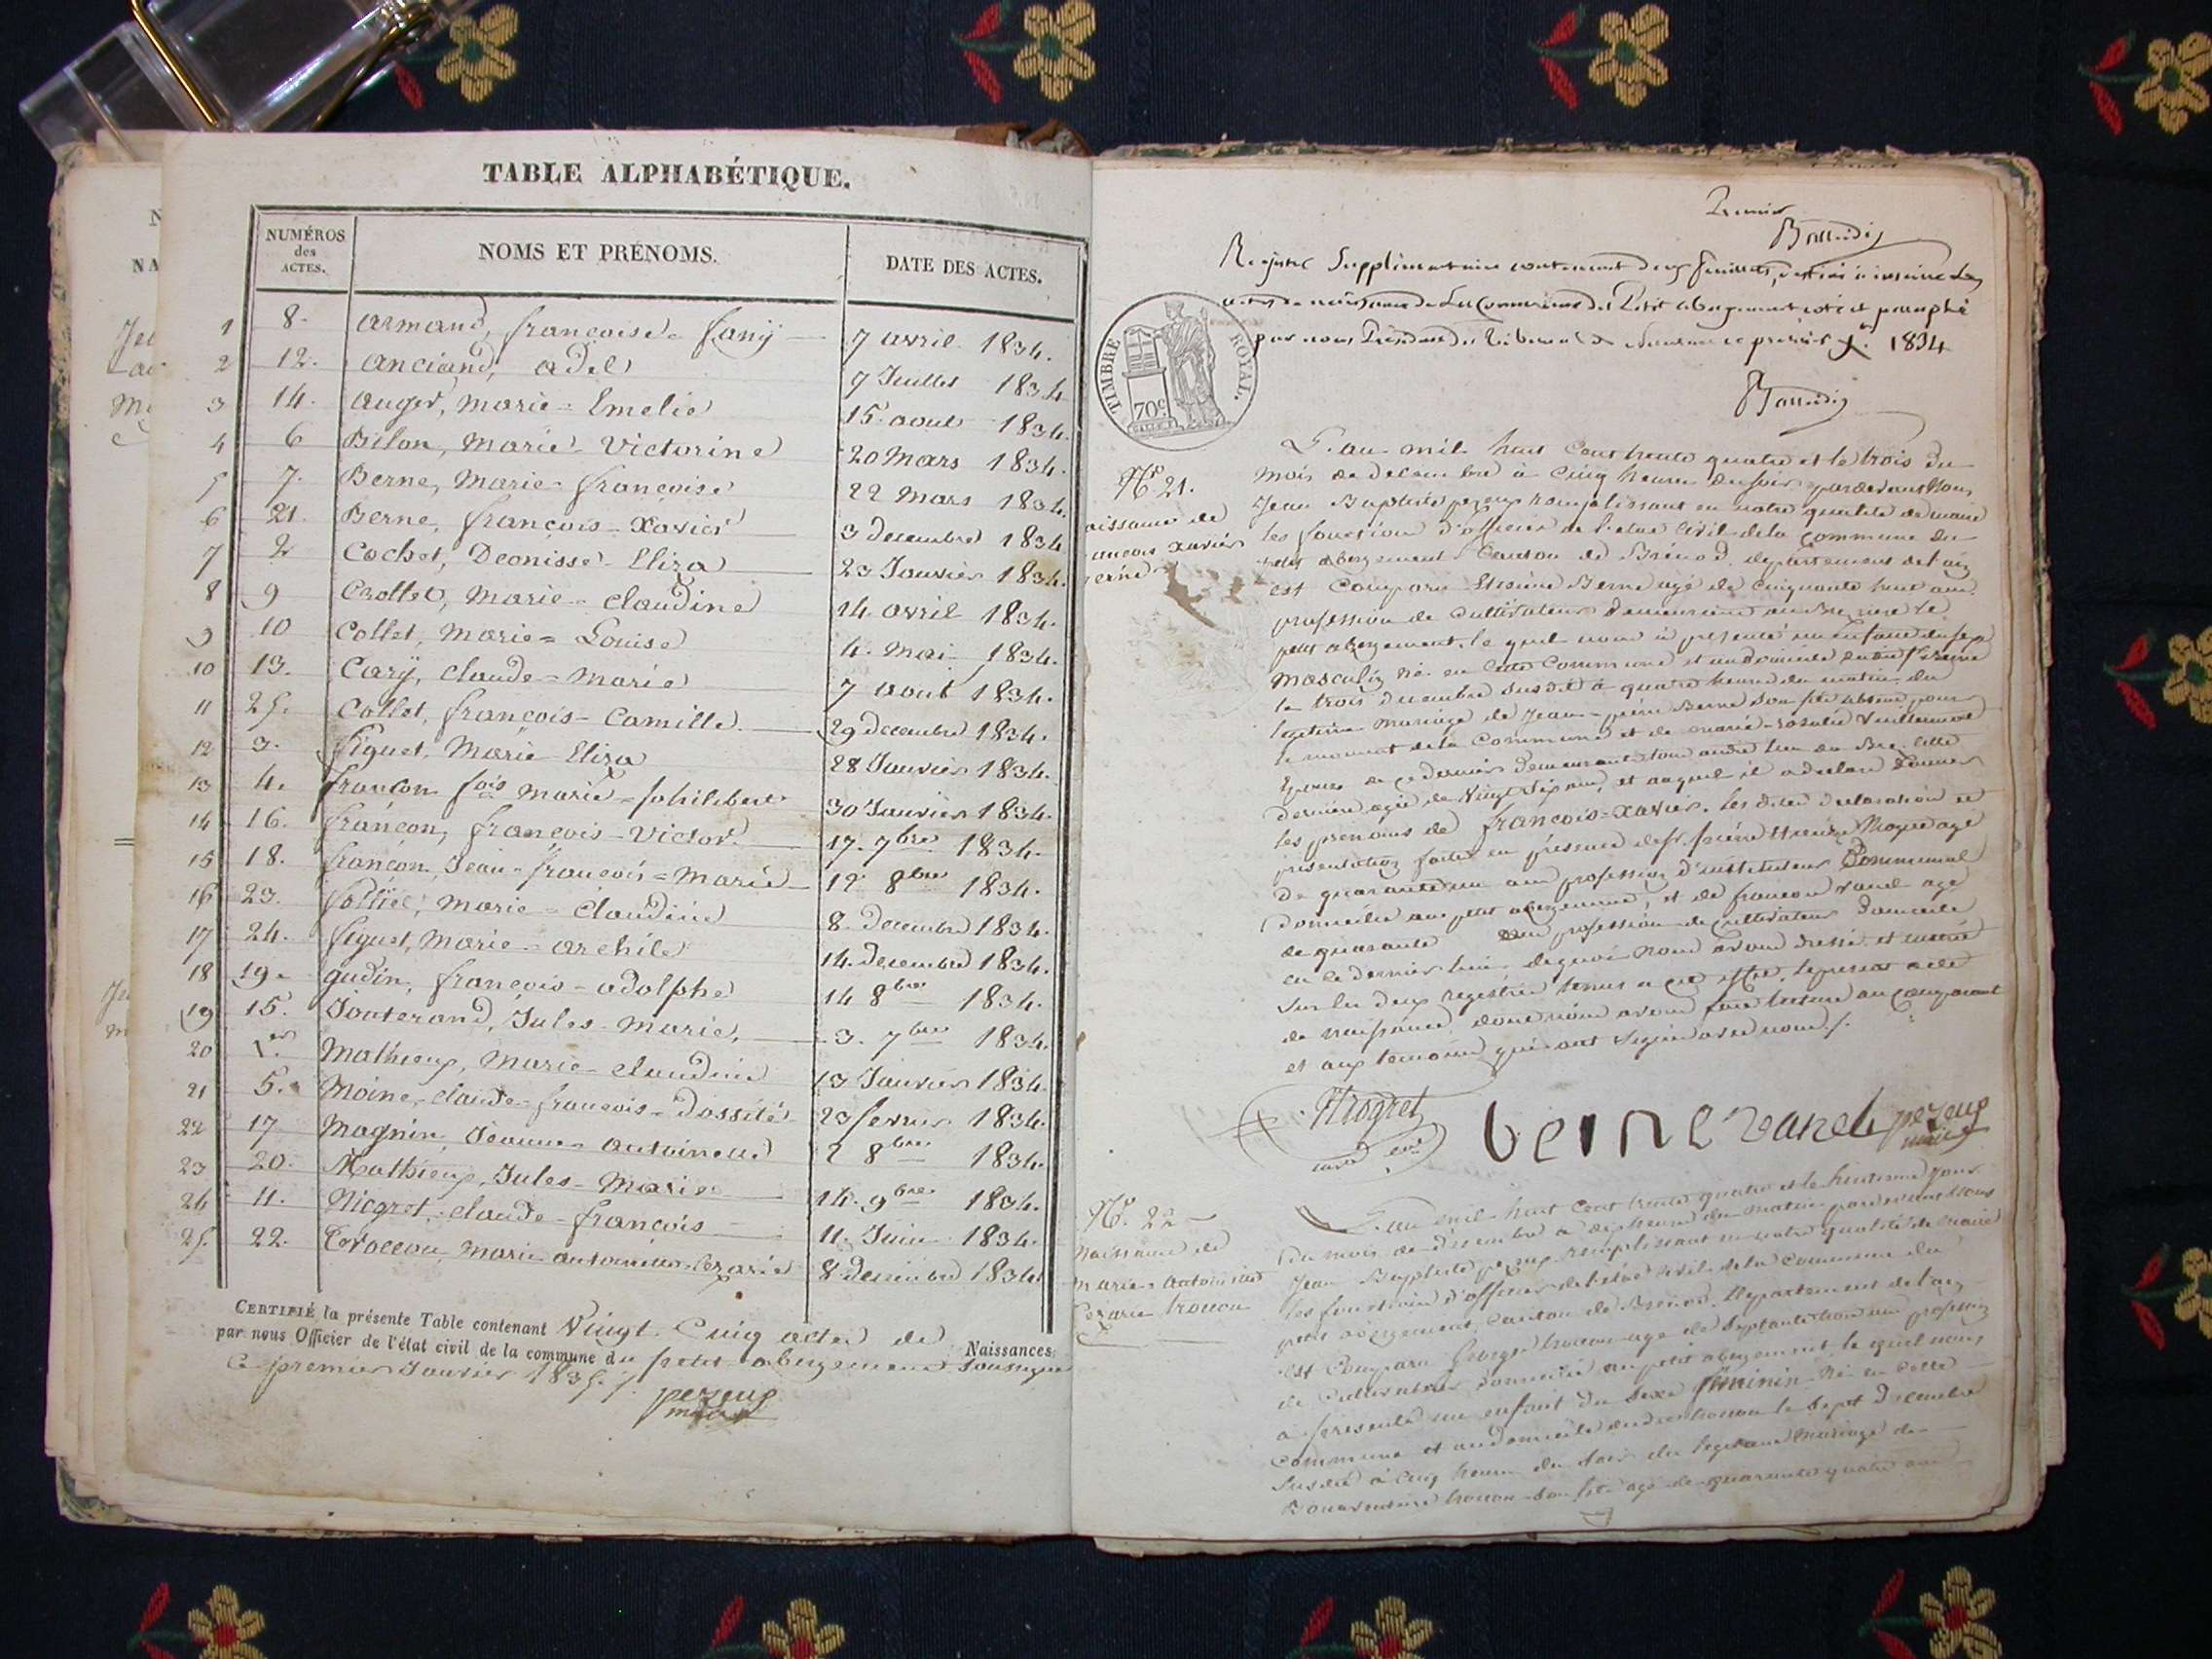 TABLE ALPHABÉTIQUE.
NUMÉROS des ACTES.
NOMS ET PRÉNOMS.
DATE DES ACTES.
1 8. armand, françoise = fanÿ 7 avril 1834.
2 12. anciand, adel 7 Juillet 1834
3 14. auger, marie = Emelie 15 aout 1834.
4 6 Bilon, marie Victorine 20 Mars 1834.
5 7. Berne, Marie = françoise 22 mars 1834.
6 21. Berne, françois = Xavier 3 decembre 1834
7 2 Cochet, Deonisse Eliza 23 Janvier 1834.
8 9 Crollet, Marie = claudine 14 avril 1834.
9 10 Collet, marie = Louise 4. mai 1834.
10 13. Carÿ, claude = marie 7 aout 1834.
11 25. Collet, françois = Camille 29 decembre 1834.
12 3. figuet, Marie Eliza 28 Janvier 1834.
13 4. françon fois marie = philibert 30 Janvier 1834.
14 16. françon, françois = Victor 17. 7bre 1834.
15 18. françon, Jean = françois = Marie 12 8bre 1834.
16 23. marie = claudine 8. decembre 1834.
17 24. figuet, Marie = archile 14. decembre 1834.
18 19. gudin, françois = adolphe 14 8bre 1834.
19 15. Jouterand, Jules Marie, 3. 7bre 1834.
20 1er Mathieux, Marie = claudine 13 Janvier 1834.
21 5. Moine, claude = françois = Dossité 23 fevrier 1834.
22 17 Magnin, Jeanne antoinette 2 8bre 1834.
23 20. Mathieux, Jules = Marie 14. 9bre 1834.
24 11. Niogret, claude = françois 11. Juin 1834.
25. 22. marie antoinette Cezarie 8 decembre 1834
CERTIFIÉ la présente Table contenant Vingt Cinq actes de Naissances
par nous Officier de l'état civil de la commune du petit abergement Soussigné
Ce premier Janvier 1835.
perieux
maire
Premier
Registre Supplémentaire contenant deux feuillets, destiné à inscrire les
actes de naissance de la Commune du Petit abergement coté et paraphé
par nous Président du Tribunal de ce premier Xbre 1834
TIMBRE ROYAL.
70c
No 21.
aissance de
ancois xavier
erne
L'an mil huit Cent trente quatre et le trois du
mois de decembre à Cinq heures du soir pardevant Nous
Jean Baptiste remplissant en notre qualité de maire
les fonctions d'officier de l'etat Civil de la Commune du
petit abergement Canton de Brénod, departement de l'ain
est Comparu Berne agé de Cinquante huit ans
profession de Cultivateur demeurant
petit abergement, le quel nous a presenté un enfant du sexe
masculin né en cette Commune et au domicile
le trois decembre susdit à quatre heures du matin du
legitime mariage de Jean = pierre Berne son fils absent pour
le moment de la Commune et de marie = rosalie
Epouse de ce dernier demeurant
derniere agée de Vingt Six ans, et auquel il a declaré donner
les prenoms de françois = xavier. les dites declaration et
presentation faites en présence de
de quarante un ans profession d'instituteur Communal
Domicilié au petit abergement, et de françon agé
de quarante ans profession de Cultivateur domicilié
en ce dernier lieu, dequoi nous avons dressé et inséré
sur les deux registres tenus a cet effet, le present acte
de naissance, dont nous avons fait lecture au Comparant
et aux temoins qui ont Signé avec nous ./.
berne
perieux
maire
No. 22
Naissance de
marie = antoinette
Cezarie
L'an mil huit Cent trente quatre et le huitieme jour
Du mois de decembre à dix heures du matin pardevant Nous
Jean Baptiste remplissant en notre qualité de Maire
les fonctions d'officier de l'etat Civil de la Commune du
petit abergement, Canton de Brénod, Departement de l'ain
est Comparu George agé de Septante ans profession
de Cultivateur domicilié au petit abergement, le quel nous
a présenté un enfant du Sexe féminin Né en cette
Commune et au domicile le Sept Decembre
Susdit à Cinq heures du soir du legitime Mariage de
Bonaventure son fils agé de quarante quatre ans